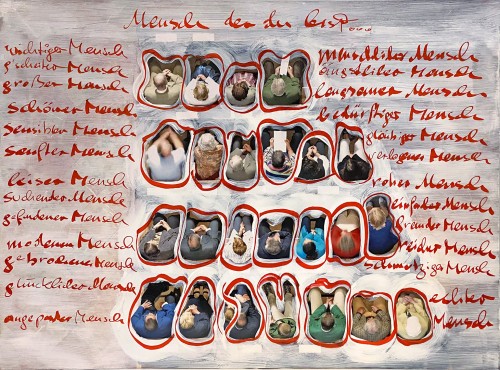 Mensch der du bist....
wichtiger Mensch
großer Mensch
schöner Mensch
sensibler Mensch
sanfter Mensch
leiser Mensch
suchender Mensch
gefundener Mensch
moderner Mensch
gebrochener Mensch
glücklicher Mensch
angepasster Mensch
menschlicher Mensch
ängstlicher Mensch
langsamer Mensch
bedürftiger Mensch
gläubiger Mensch
verlogener Mensch
roher Mensch
einfacher Mensch
fremder Mensch
reicher Mensch
schmutziger Mensch
echter
Mensch